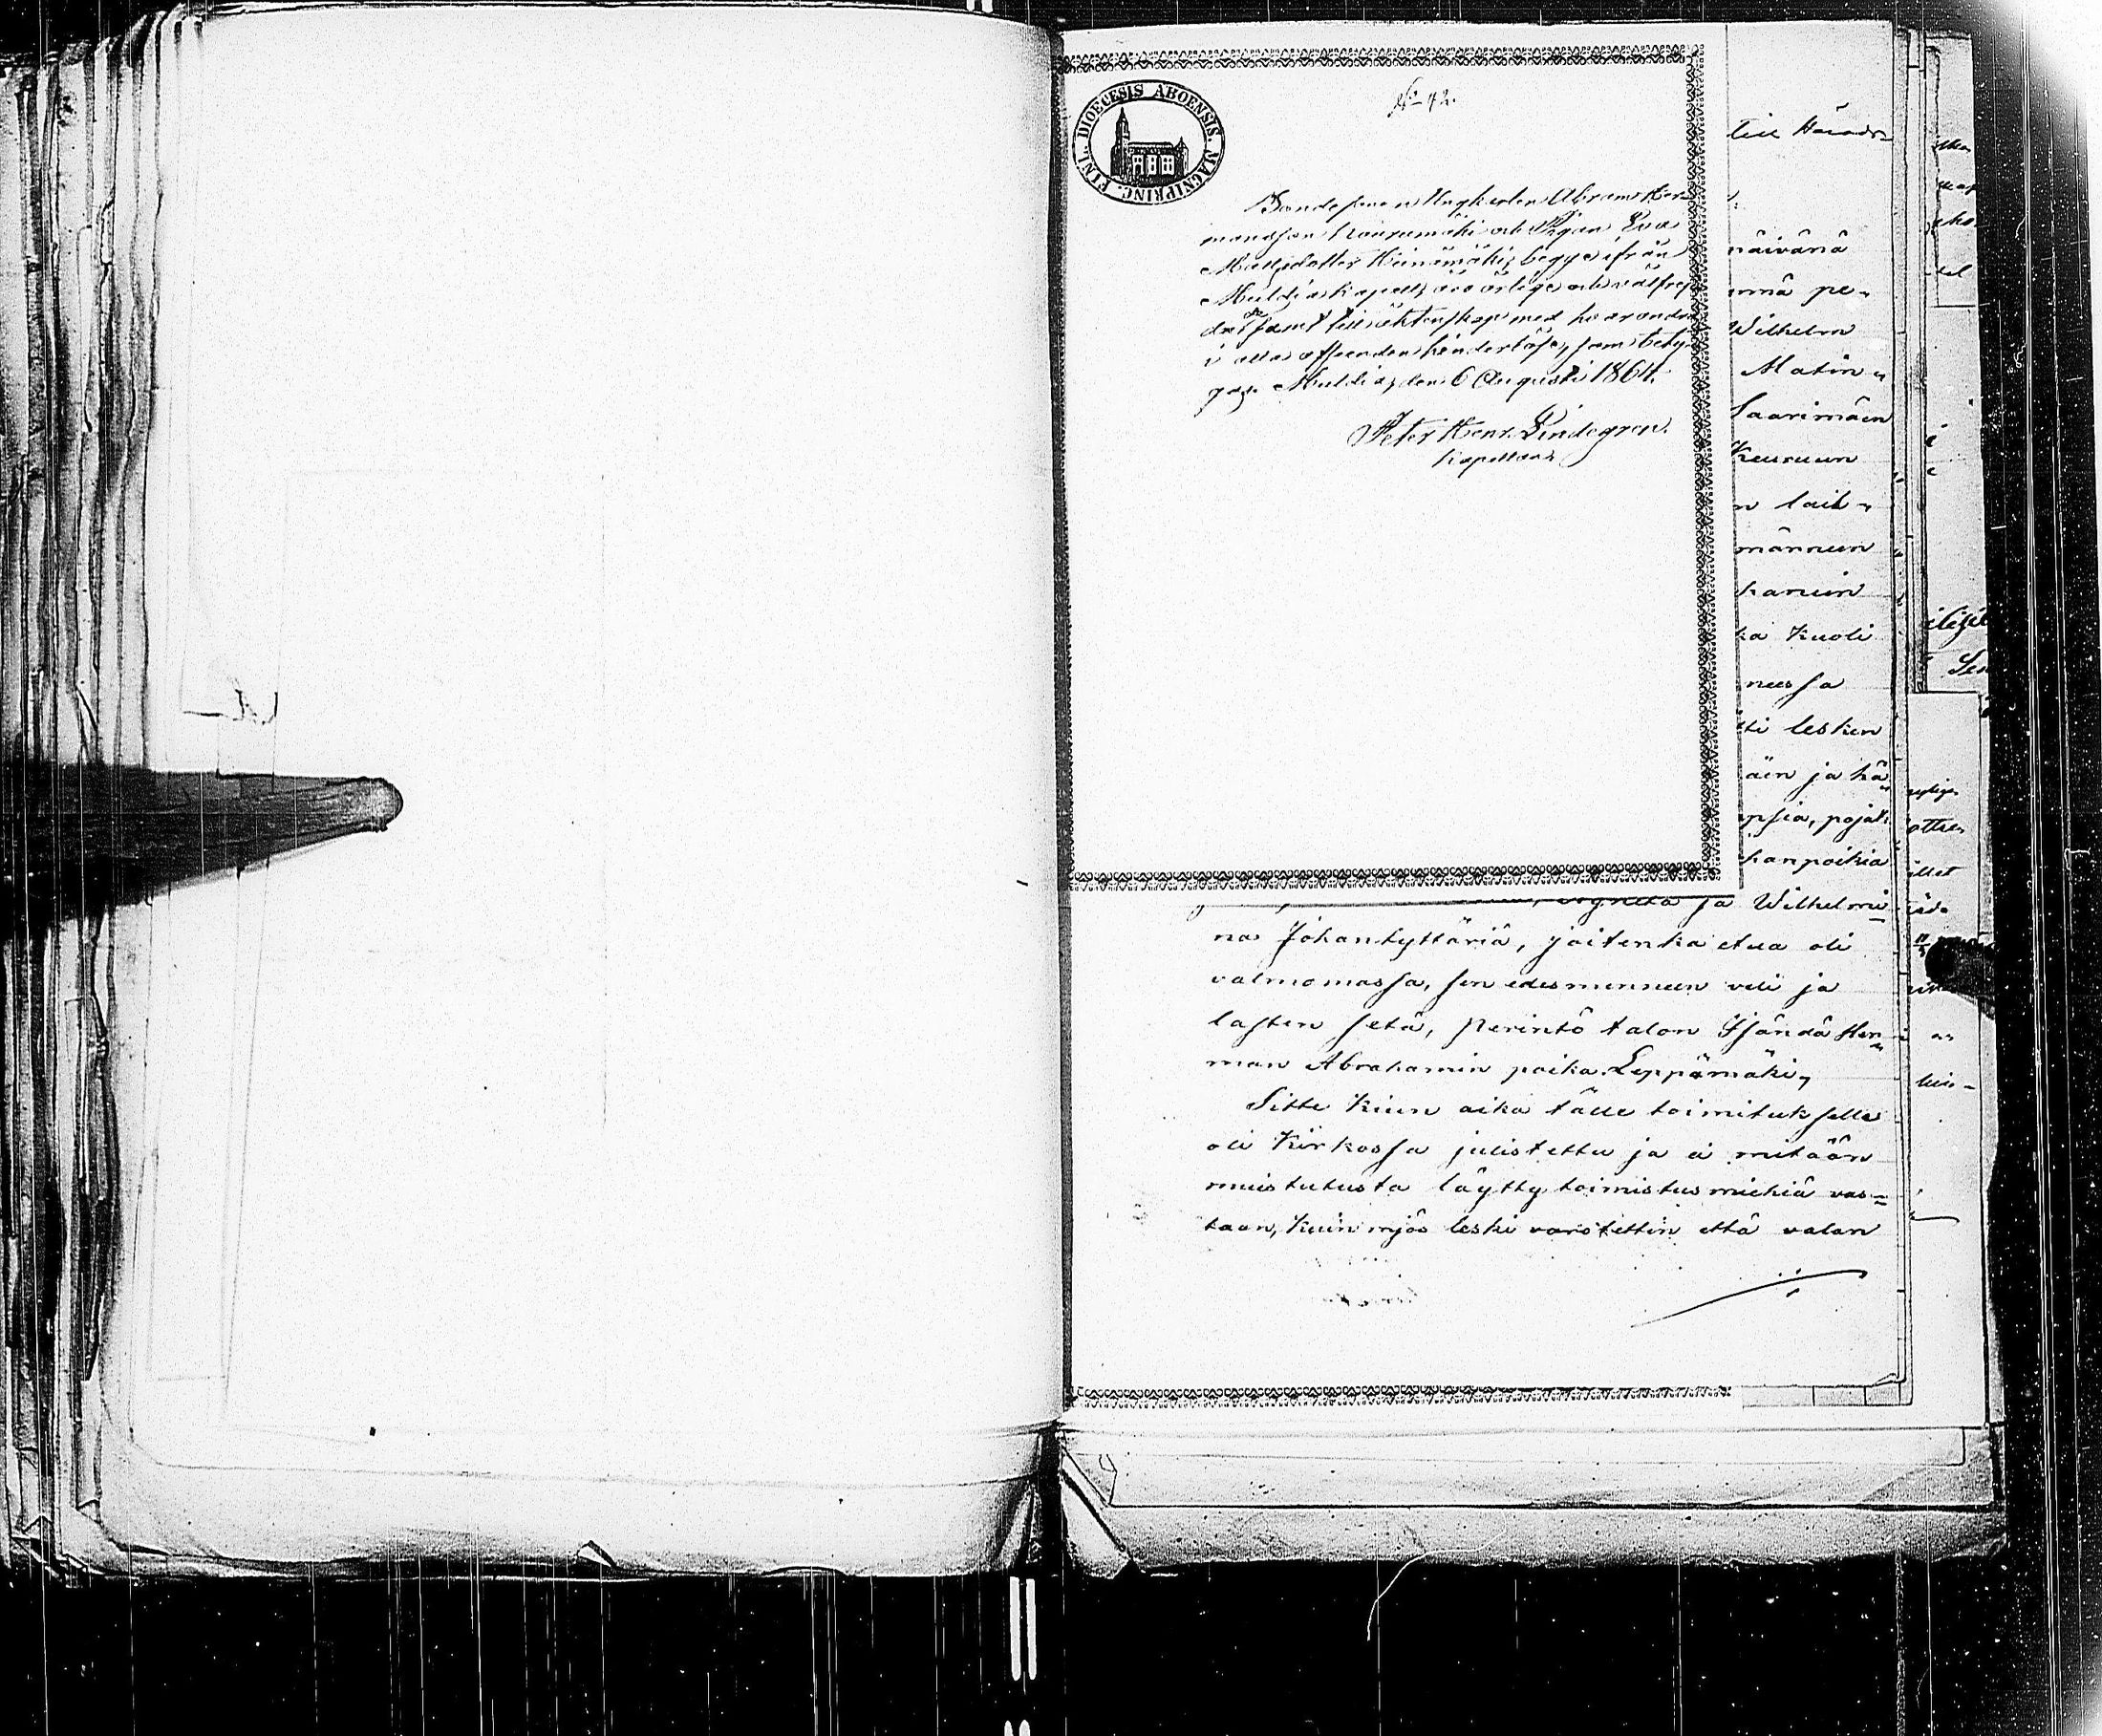 DIOECESIS ABOENSIS. MAGNIPRINC. FINL.
No 42.
Bondesonen Ungkarlen Abram Her
mansson Kaurumäki och Pigan Eva
Mattsdotter Heinämäki, begge ifrån
Multia Kapell, äro ärlige och välfrej
dade samt till äktenskap med hvarandra
i alla afseenden hinderlöse, som bety
gas. Multia, den 6 Augusti 1864.
Peter Henr. Lindegren.
Kapellan
till Härads-
näivänä
pe-
Wilhelm
Matin
Saarimäen
Keuruun
n lail-
männeen
kanuin
ka Kuoli
neessa
tti lesken
äin ja hä
psia, pojat
hanpoikia
ja Wilhelmi
na Johantyttäriä, joitenka etua oli
valmomassa, sen edesmenneen veli ja
lasten setä, perintö talon Isändä Her
man Abrahamin poika Leppämäki,
Sitte Kuin aika tälle toimitukselle
oli Kirkossa julistettu ja ei mitään
muistutusta löytty toimistusmiehiä vas=
taan, Kuin myös leski varotettin että valan